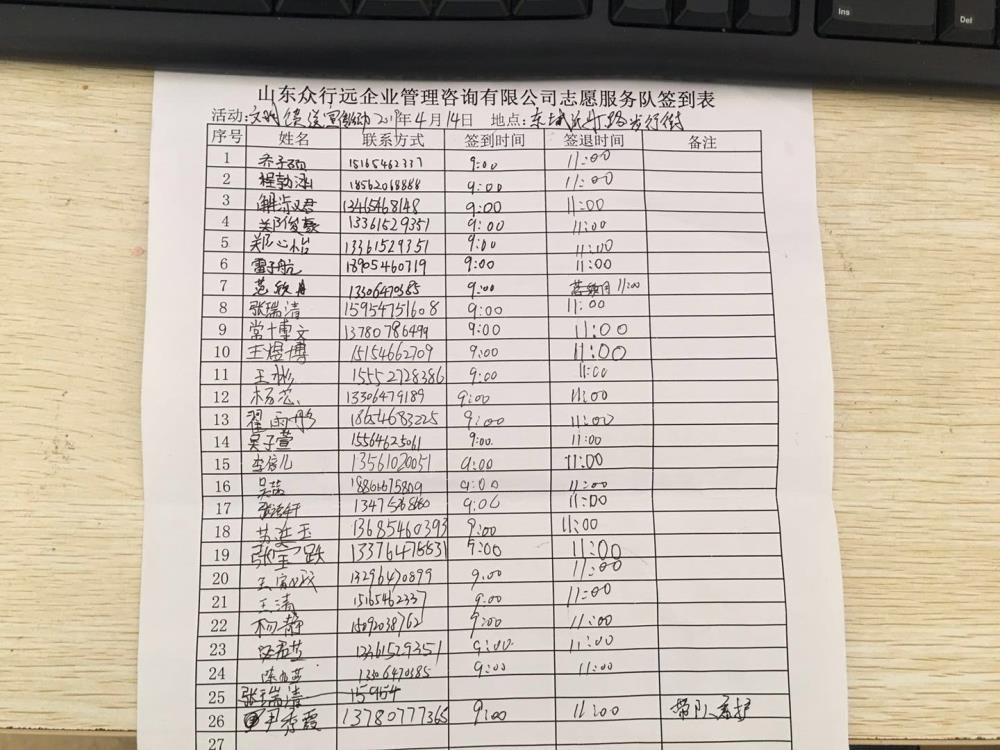 Ins
Del
山东众行远企业管理咨询有限公司志愿服务队签到表
活动: 文明 宣 活动 2019年4月14日 地点: 东 步行街
序号 姓名 联系方式 签到时间 签退时间 备注
1 乔子 15165462337 9:00 11:00
2 程勃涵 18562068888 9:00 11:00
3 解淑君 13465468148 9:00 11:00
4 郑俊豪 13361529351 9:00 11:00
5 郑心怡 13361529351 9:00 11:00
6 雷子航 18905460719 9:00 11:00
7 范 月 13306470385 9:00 11:00
8 张瑞清 15954751608 9:00 11:00
9 常博文 13780786499 9:00 11:00
10 王煜博 15154662709 9:00 11:00
11 王彬 15552728386 9:00 11:00
12 杨芯 13306479189 9:00 11:00
13 翟雨彤 18654683225 9:00 11:00
14 吴子萱 15564625061 9:00. 11:00
15 李 儿 13561020051 9:00 11:00
16 吴 18861675809 9:00 11:00
17 张 轩 9:00 11:00
18 苏 玉 13685460393 9:00 11:00
19 张 跃 13376475531 9:00 11:00
20 王 13296470899 9:00 11:00
21 王清 15165462337 9:00 11:00
22 杨静 15092038762 9:00 11:00
23 13361529351 9:00 11:00
24 陈 13306470385 9:00 11:00
25 张瑞清 15954
26 尹秀霞 13780777365 9:00 11:00 带队
27